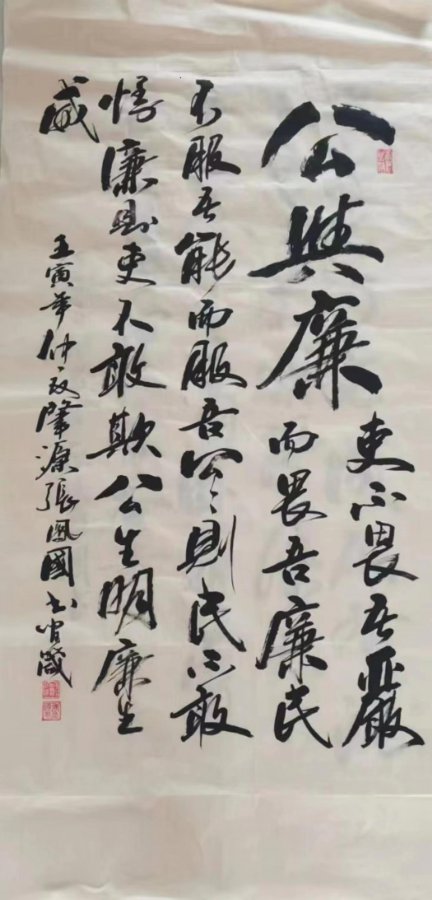 公與廉
吏不畏吾嚴
而畏吾廉民
不服吾能而服吾公〻則民不敢
慢廉则吏不敢欺公生明廉生
威
壬寅年仲夏肇源張鳳國书官箴